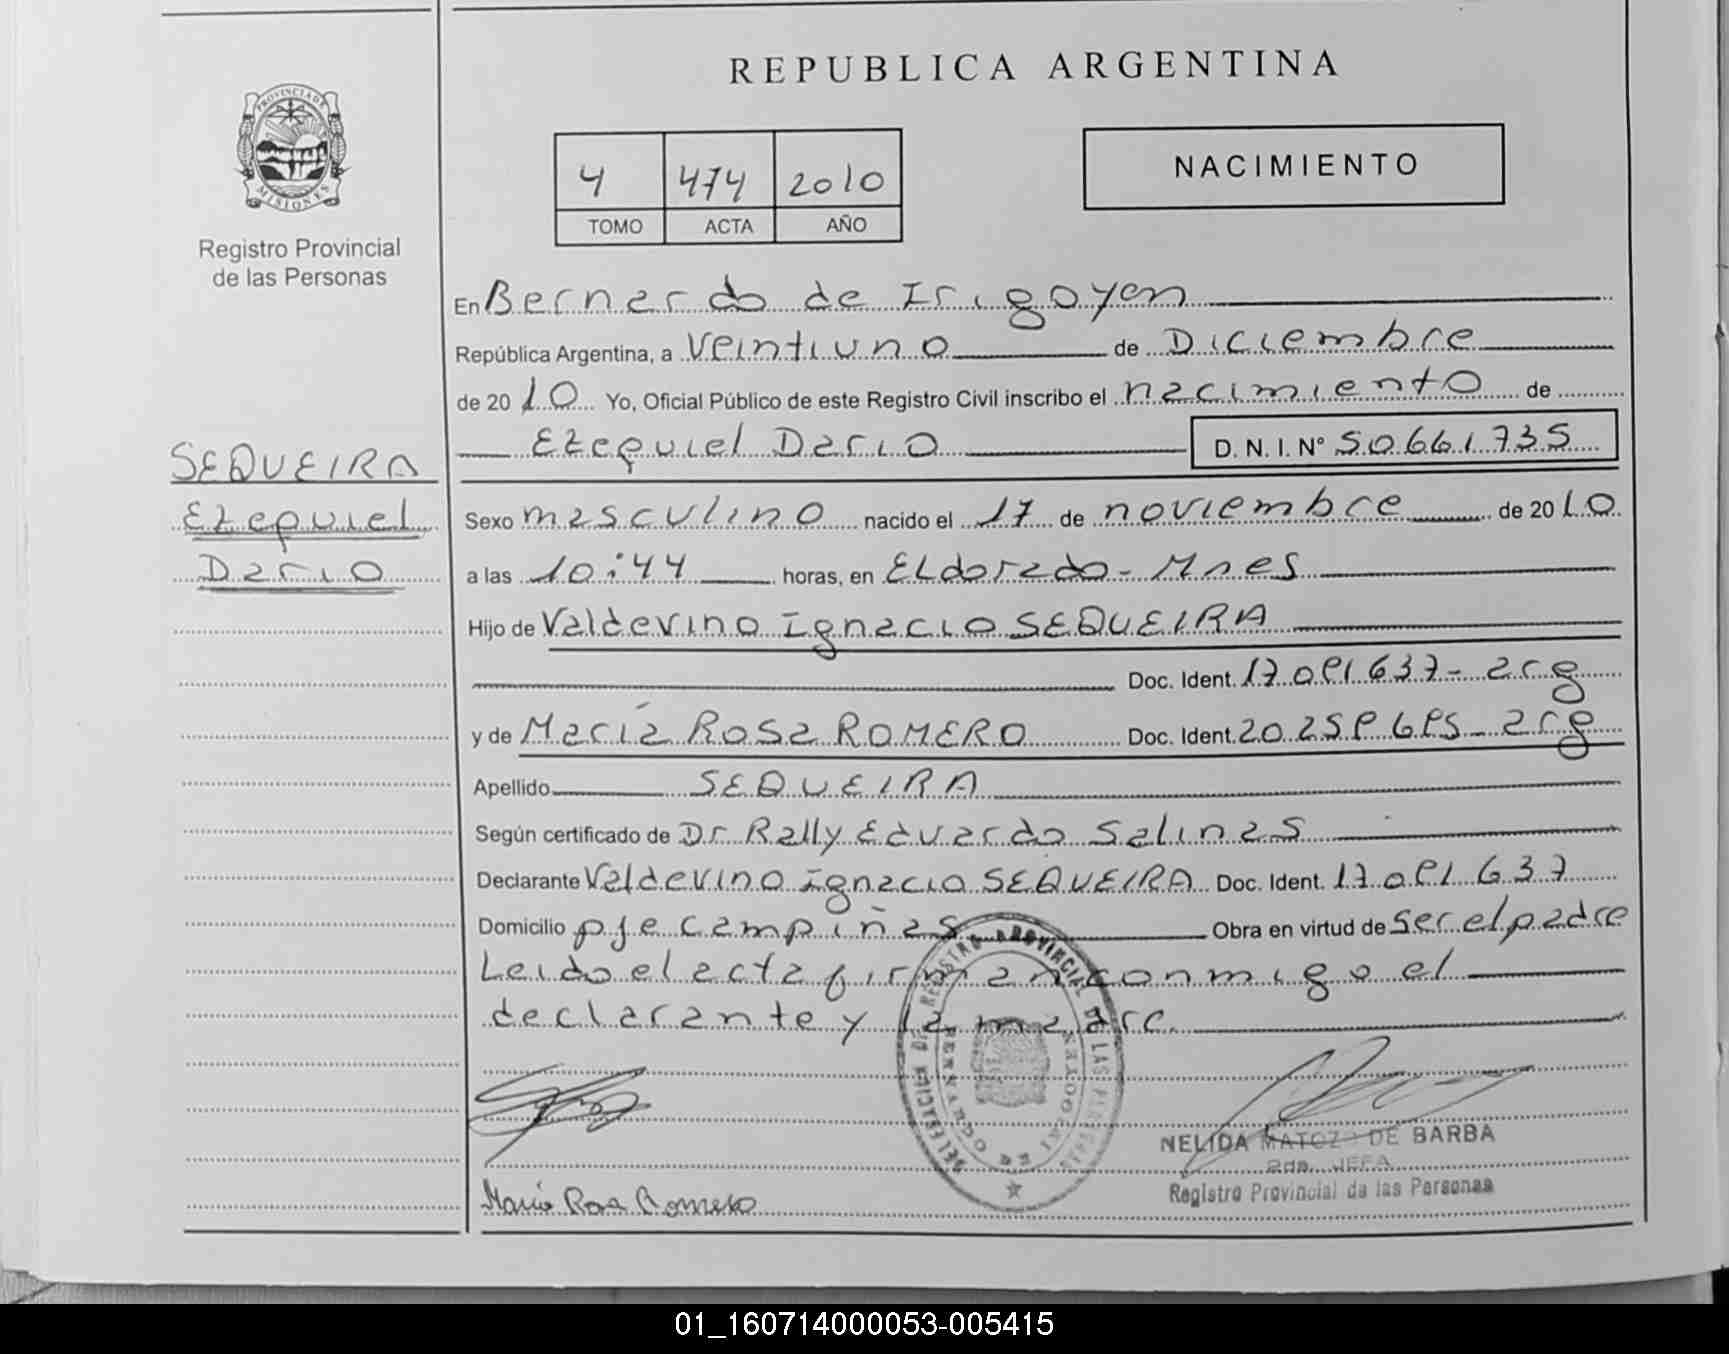 REPUBLICA ARGENTINA
PROVINCIA DE
MISIONES
Registro Provincial
de las Personas
4 474 2010
TOMO ACTA AÑO
NACIMIENTO
En Bernardo de Irigoyen
República Argentina, a Veintiuno de Diciembre
de 2010 Yo, Oficial Público de este Registro Civil inscribo el nacimiento de
Ezequiel Dario D. N. I. Nº 50661735
SEQUEIRA
Ezequiel
Dario
Sexo masculino nacido el 17 de noviembre de 2010
a las 10:44 horas, en ELdorado - Mnes
Hijo de Valdevino Ignacio SEQUEIRA
Doc. Ident. 17.081.637 - arg
y de María Rosa ROMERO Doc. Ident. 20.258.685 - arg
Apellido SEQUEIRA
Según certificado de Dr. Rally Eduardo Salinas
Declarante Valdevino Ignacio SEQUEIRA Doc. Ident. 17.081.637
Domicilio pje campiñas Obra en virtud de ser el padre
Leido el acta firman conmigo el
declarante y la madre.
REGISTRO PROVINCIAL DE LAS PERSONAS
BERNARDO DE IRIGOYEN
NELIDA MATOZO DE BARBA
2da. JEFA
Registro Provincial de las Personas
María Rosa Romero
01_160714000053-005415